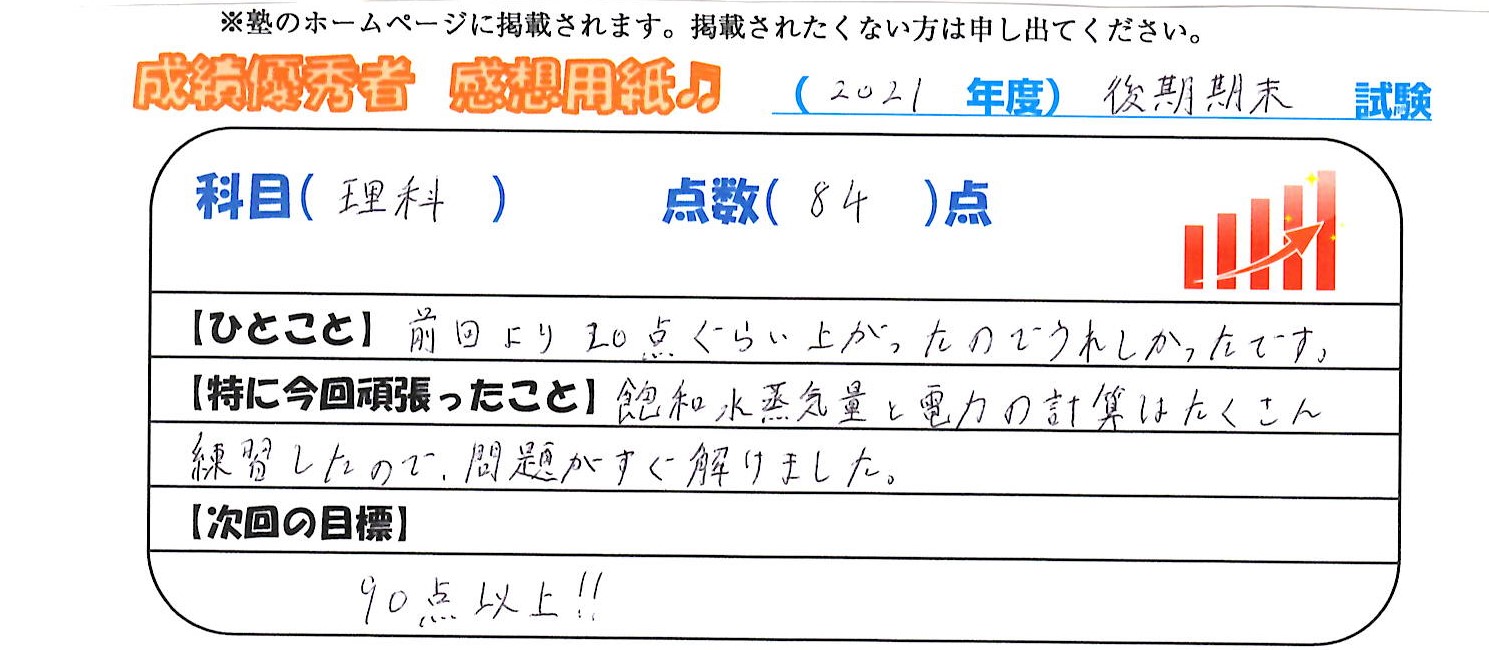 ※塾のホームページに掲載されます。掲載されたくない方は申し出てください。
成績優秀者 感想用紙♫ (2021 年度) 後期期末 試験
科目(理科) 点数(84)点
【ひとこと】前回より20点ぐらい上がったのでうれしかったです。
【特に今回頑張ったこと】飽和水蒸気量と電力の計算はたくさん
練習したので、問題がすぐ解けました。
【次回の目標】
90点以上!!